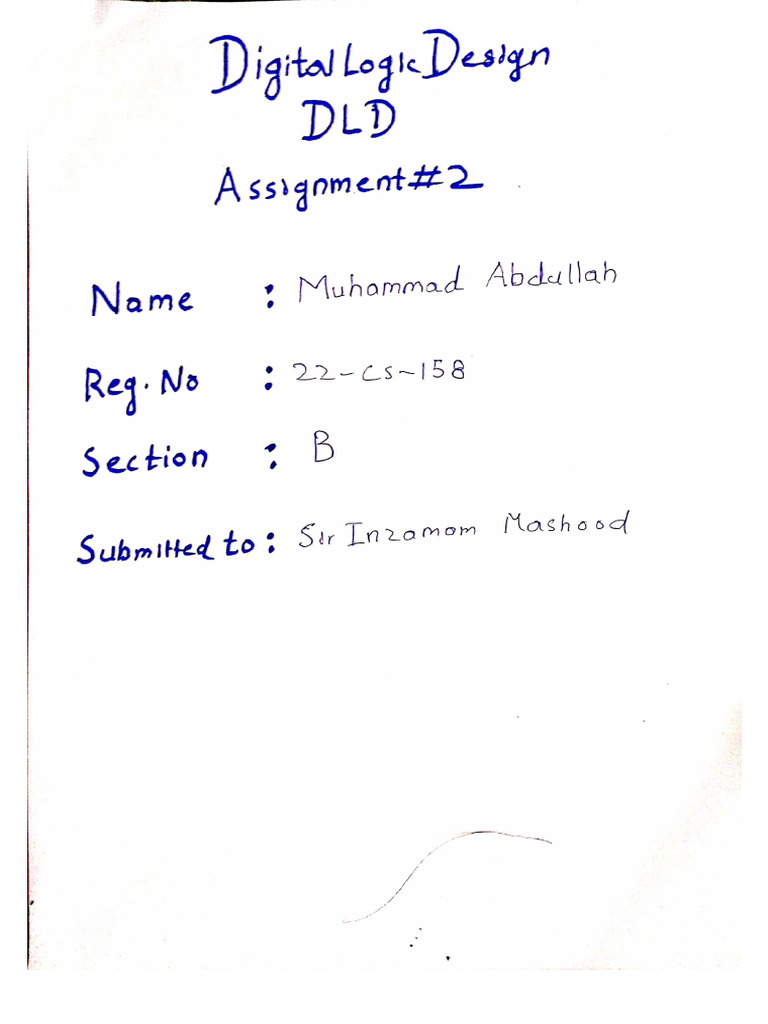 Digital Logic Design
DLD
Assignment#2
Name : Muhammad Abdullah
Reg. No : 22-cs-158
Section : B
Submitted to : Sir Inzamam Mashood